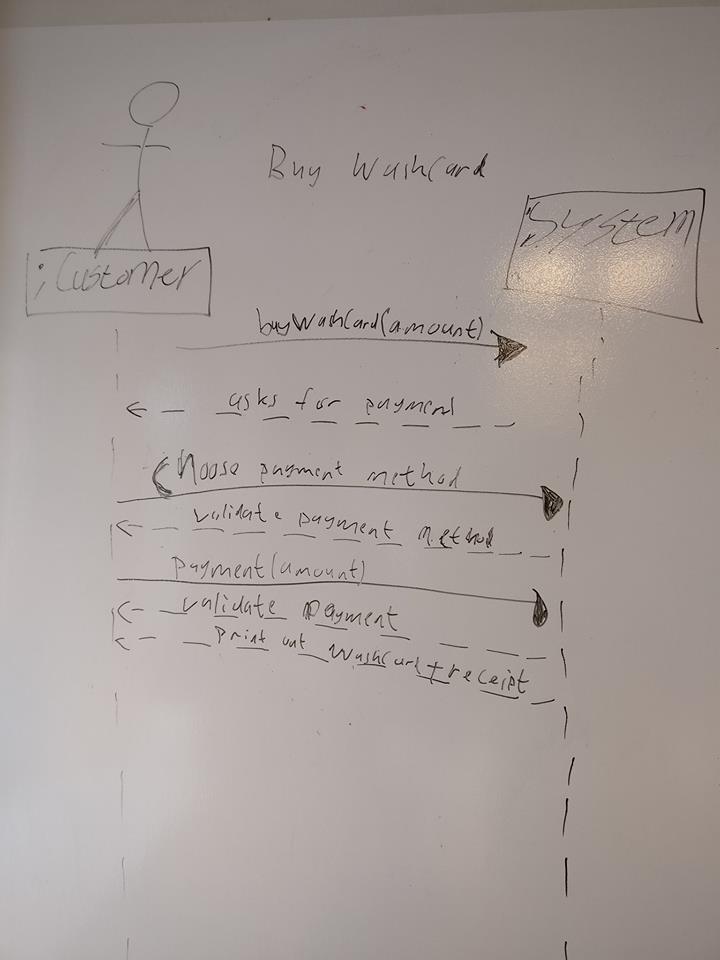 Buy WashCard
:System
:Customer
buyWashCard(amount)
asks for payment
Choose payment method
validate payment method
payment(amount)
validate payment
print out WashCard + receipt